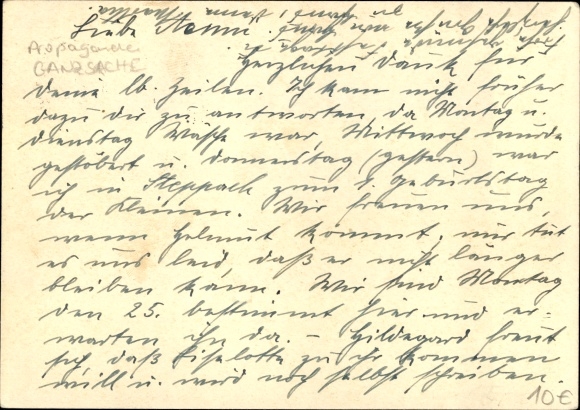 Liebe Henni!
Propaganda
GANZSACHE
Herzlichen Dank für
Deine lb. Zeilen. Ich kam nicht früher
dazu dir zu antworten, da Montag u.
Dienstag Wäsche war, Mittwoch wurde
gestöbert u. Donnerstag (gestern) war
ich in Steppach zum 1. Geburtstag
der Kleinen. Wir freuen uns,
wenn Helmut kommt, nur tut
es uns leid, daß er nicht länger
bleiben kann. Wir sind Montag
den 25. bestimmt hier und er-
warten ihn da. – Hildegard freut
sich daß Liselotte zu ihr kommen
will u. wird noch selbst schreiben.
10€